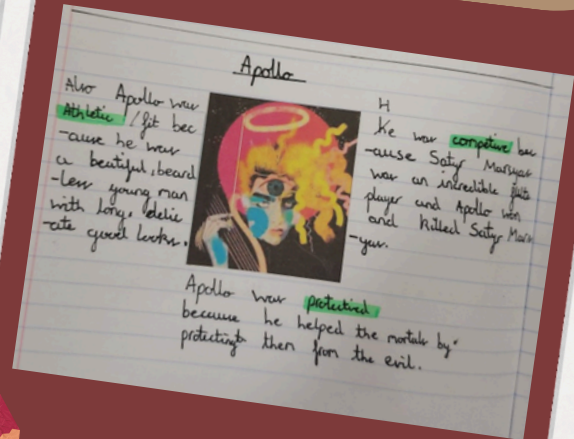 Apollo
Also Apollo was
Athletic / fit bec
-ause he was
a beatiful, beard
-less young man
with long, delic
-ate good looks.
H
He was competive bec
-ause Satyr Marsyas
was an incredible flute
player and Apollo won
and killed Satyr Mars
-yas.
Apollo was protectived
because he helped the mortals by
protecting them from the evil.